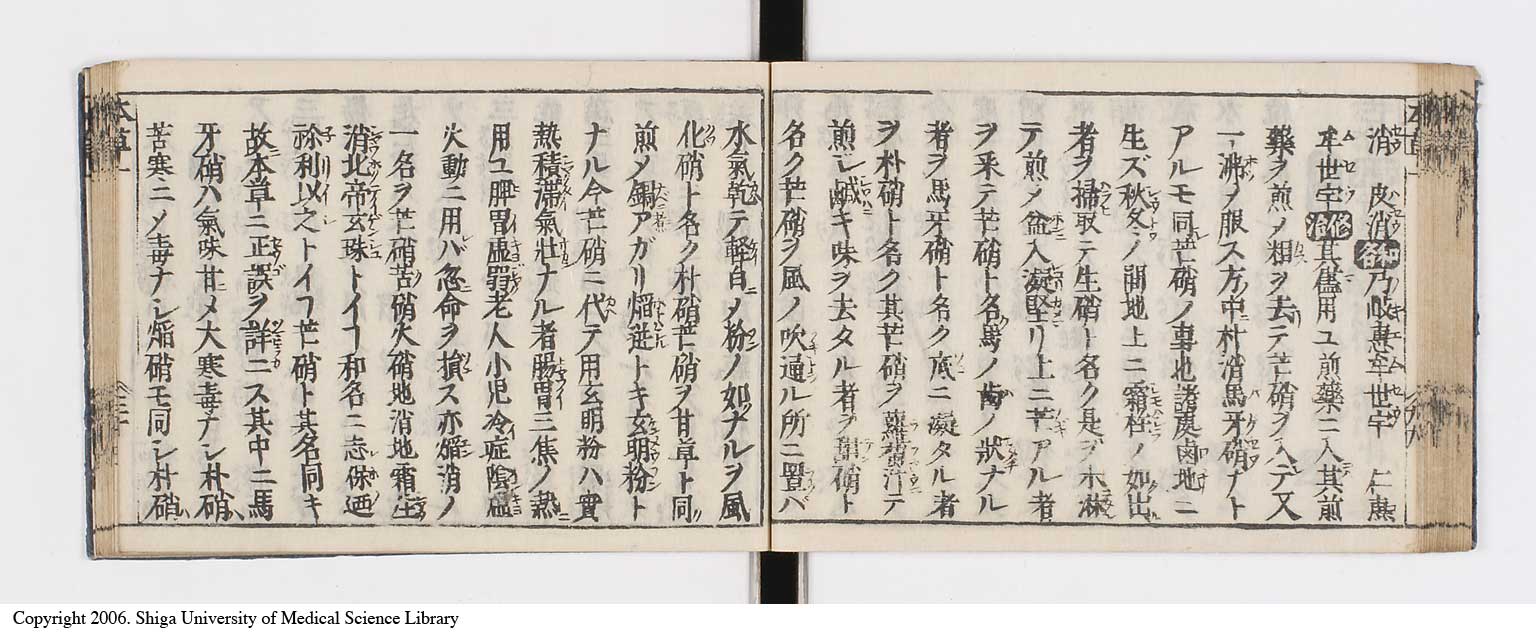 消 皮消和名乃岐恵牟世宇 仁恵
牟世宇修治其儘用ユ煎藥ニ入其煎
藥ヲ煎メ粗ヲ去テ芒硝ヲ入テ又
一沸メ服ス方中朴消馬牙硝ナト
アルモ同芒硝ノ專地諸處鹵地ニ
生ズ秋冬ノ間地上ニ霜柱ノ如出
者ヲ掃取テ生硝ト名ク是ヲ水淋
テ煎メ盆入凝堅リ上ニ芒アル者
ヲ采テ芒硝ト名馬ノ歯ノ狀ナル
者ヲ馬牙硝ト名ク底ニ凝タル者
ヲ朴硝ト名ク其芒硝ヲ蘿蔔汁テ
煎シ鹹キ味ヲ去タル者ヲ甜硝ト
名ク芒硝ヲ風ノ吹通ル所ニ置バ
水氣乾テ軽白メ粉ノ如ナルヲ風
化硝ト名ク朴硝芒硝ヲ甘草ト同
煎メ鍋アガリ煅逆トキ玄明粉ト
ナル今芒硝ニ代テ用玄明粉ハ實
熱積滞氣壮ナル者腸胃三焦ノ熱
用ユ脾胃虚弱老人小児冷症陰虚
火動ニ用ハ忽命ヲ損ス亦焔消ノ
一名ヲ芒硝苦硝火硝地消地霜生
消北帝玄珠トイフ和名ニ志保迺
祢利以之トイフ芒硝ト其名同キ
故本草ニ正誤ヲ詳ニス其中ニ馬
牙硝ハ氣味甘メ大寒毒ナシ朴硝ハ
苦寒ニメ毒ナシ焔硝モ同シ朴硝